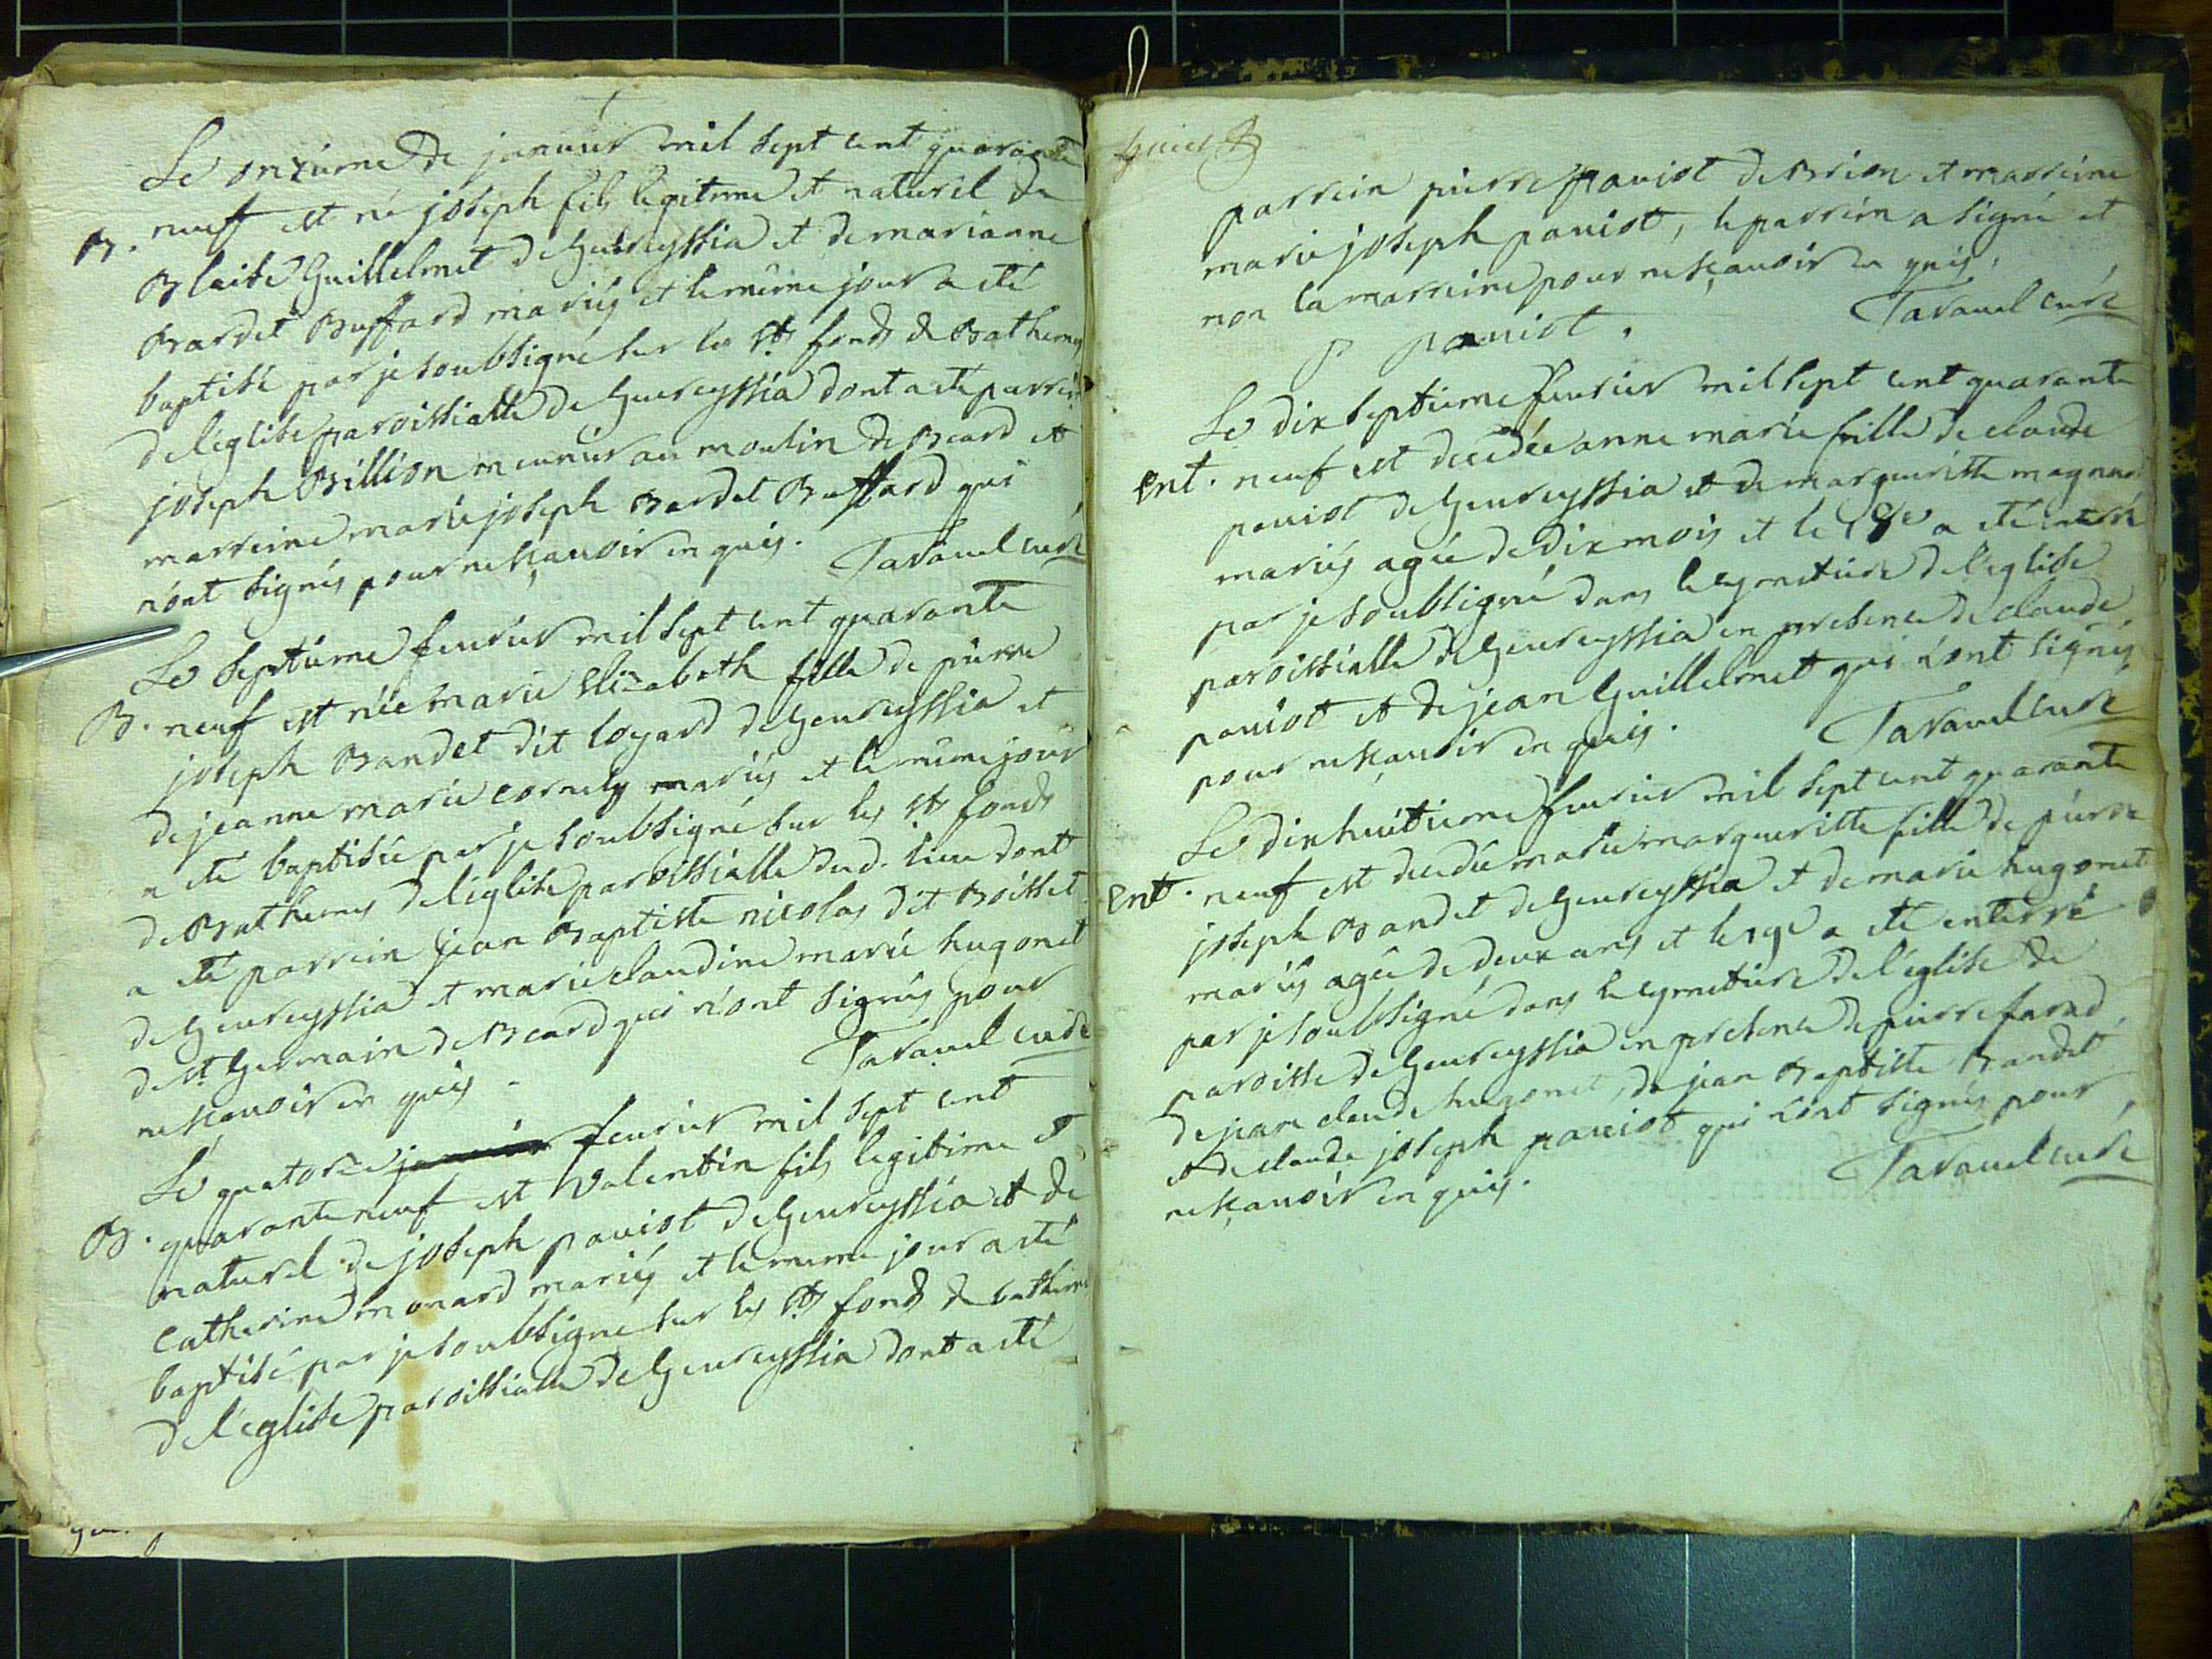 Le onzieme de janvier mil sept cent quarante
B. neuf est né joseph fils legitime et naturel de
Blaise Guillelmet de Geureyssia et de marianne
Bardet Buffard mariés et le même jour a été
baptisé par je soubsigné sur les sts fonds de Bathemes
de l'eglise paroissialle de Geureyssia dont a été parrein
joseph Billion meunier au moulin de Beard et
marreine marie joseph Bardet Buffard qui
n'ont signés pour ne sçavoir en quis. Taravel curé
Le septieme feurier mil sept cent quarante
B. neuf est née marie Elizabeth fille de pierre
joseph Bandet dit loyard de Geureyssia et
de jeanne marie cornely mariés et le même jour
a été baptisée par je soubsigné sur les sts fonds
de Bathemes de l'eglise paroissialle dud. lieu dont
a été parrein jean Baptiste nicolas dit Boisset
de Geureyssia et marie claudine marie hugonet
de st. Germain de Beard qui n'ont signés pour
ne sçavoir en quis. Taravel curé
Le quatorze janvier feurier mil sept cent
B. quarante neuf est Valentin fils legitime et
naturel de joseph pauiot de Geureyssia et de
Catherine monard mariés et le meme jour a été
baptisé par je soubsigné sur les sts fonds de batheme
de l'eglise paroissialle de Geureyssia dont a été
parrein pierre pauiot de Brion et marreine
marie joseph pauiot, le parrein a signé et
non la marreine pour ne sçauoir en quis.
P pauiot. Taravel curé
Le dix septieme feurier mil sept cent quarante
ent. neuf est decedée anne marie fille de claude
pauiot de Geureyssia et de margueritte magnard
mariés agée de dix mois et le 18e a été enterré
par je soubsigné dans le cymetiere de l'eglise
paroissialle de Geureyssia en presence de claude
pauiot et de jean Guillelmet qui n'ont signés
pour ne sçauoir en quis. Taravel curé
Le dix huitieme feurier mil sept cent quarante
ent. neuf est decedée marie margueritte fille de pierre
joseph Bandet de Geureyssia et de marie hugonet
mariés agée de deux ans et le 19e a été enterré
par je soubsigné dans le cymetiere de l'eglise de
paroisse de Geureyssia en presence de pierre farad
de jean claude hugonet, de jean Baptiste Bandet
et de claude joseph pauiot qui n'ont signés pour
ne sçauoir en quis. Taravel curé